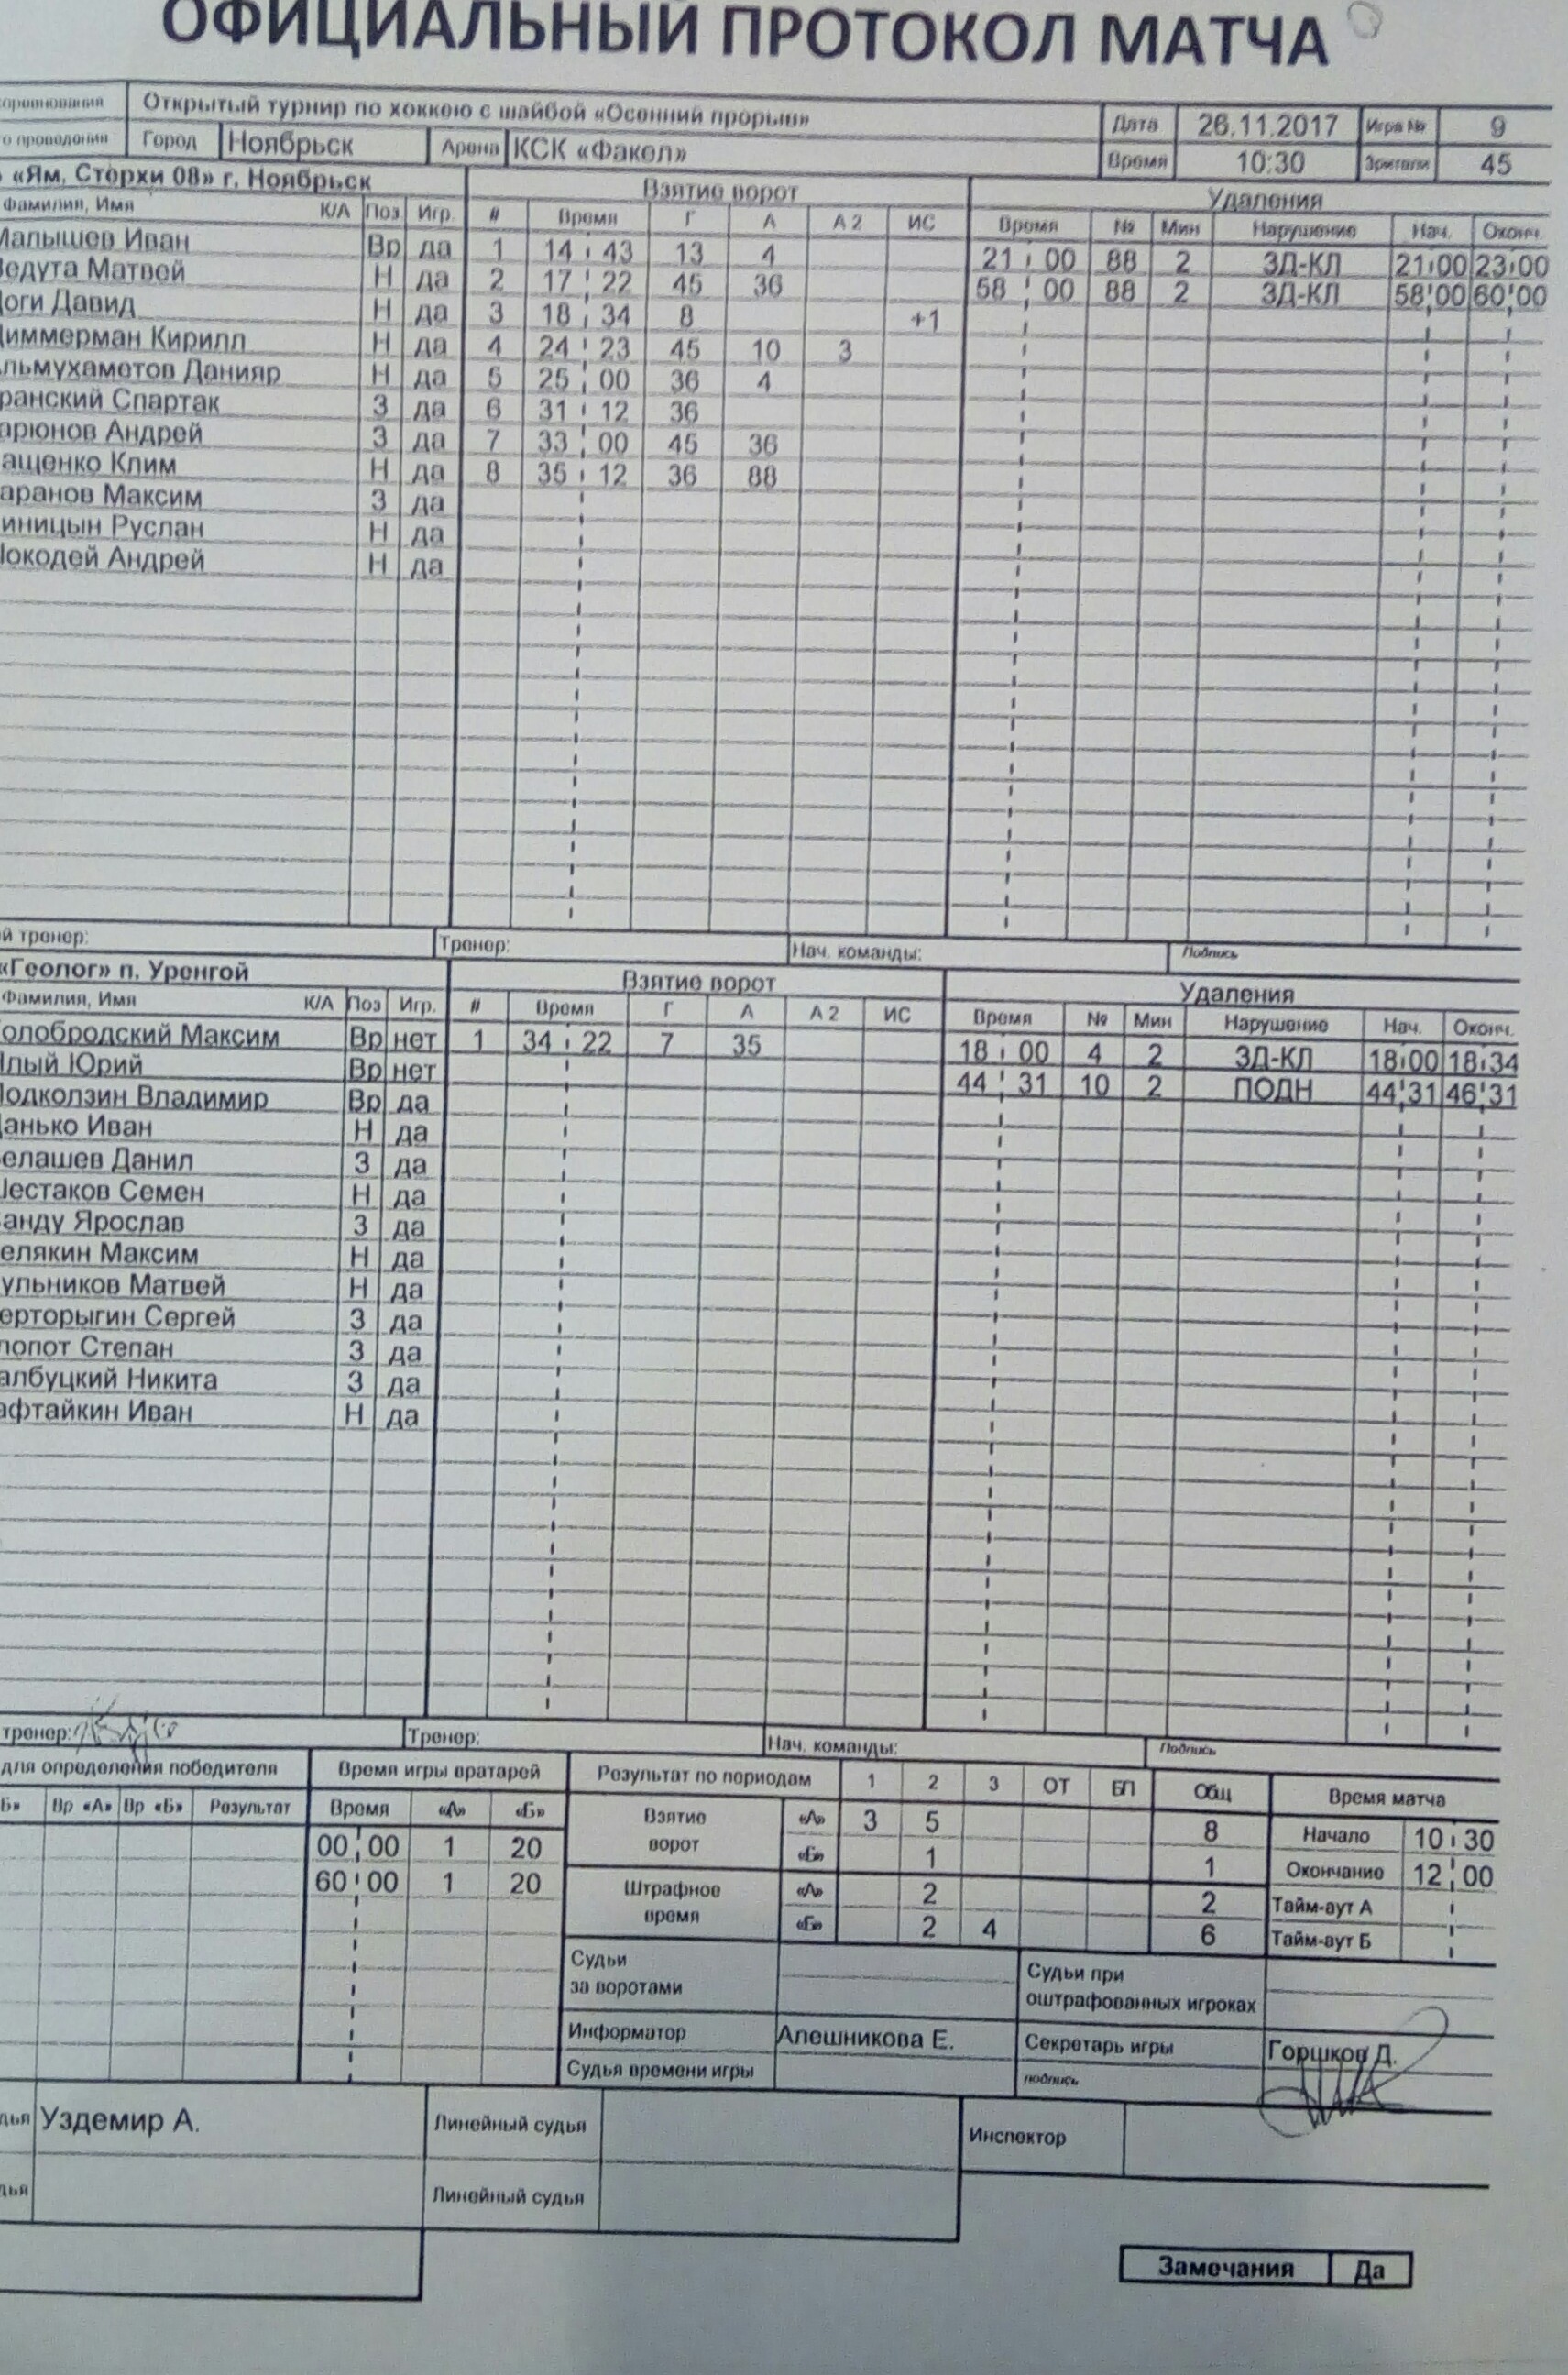 ОФИЦИАЛЬНЫЙ ПРОТОКОЛ МАТЧА
Открытый турнир по хоккею с шайбой «Осенний прорыв» Дата 26.11.2017 Игра № 9
Город Ноябрьск Арена КСК «Факел» Время 10:30 Зрители 45
«Ям. Стерхи 08» г. Ноябрьск Взятие ворот Удаления
Фамилия, Имя К/А Поз Игр. # Время Г А А 2 ИС Время № Мин Нарушение Нач. Оконч.
Малышев Иван Вр да 1 14 43 13 4 21 00 88 2 ЗД-КЛ 21 00 23 00
Ведута Матвей Н да 2 17 22 45 36 58 00 88 2 ЗД-КЛ 58 00 60 00
Доги Давид Н да 3 18 34 8 +1
Циммерман Кирилл Н да 4 24 23 45 10 3
Альмухаметов Данияр Н да 5 25 00 36 4
ранский Спартак З да 6 31 12 36
арюнов Андрей З да 7 33 00 45 36
ащенко Клим Н да 8 35 12 36 88
аранов Максим З да
иницын Руслан Н да
Шокодей Андрей Н да
й тренер: Тренер: Нач. команды: Подпись
«Геолог» п. Уренгой Взятие ворот Удаления
Фамилия, Имя К/А Поз Игр. # Время Г А А 2 ИС Время № Мин Нарушение Нач. Оконч.
олобродский Максим Вр нет 1 34 22 7 35 18 00 4 2 ЗД-КЛ 18 00 18 34
лый Юрий Вр нет 44 31 10 2 ПОДН 44 31 46 31
Подколзин Владимир Вр да
анько Иван Н да
елашев Данил З да
Шестаков Семен Н да
анду Ярослав З да
елякин Максим Н да
ульников Матвей Н да
ерторыгин Сергей З да
лопот Степан З да
албуцкий Никита З да
афтайкин Иван Н да
тренер: Тренер: Нач. команды: Подпись
для определения победителя Время игры вратарей Результат по периодам 1 2 3 ОТ БП Общ Время матча
Б» Вр «А» Вр «Б» Результат Время «А» «Б» Взятие ворот «А» 3 5 8 Начало 10 30
00 00 1 20 «Б» 1 1 Окончание 12 00
60 00 1 20 Штрафное время «А» 2 2 Тайм-аут А
«Б» 2 4 6 Тайм-аут Б
Судьи за воротами Судьи при оштрафованных игроках
Информатор Алешникова Е. Секретарь игры Горшков Д.
Судья времени игры подпись
дья Уздемир А. Линейный судья Инспектор
дья Линейный судья
Замечания Да